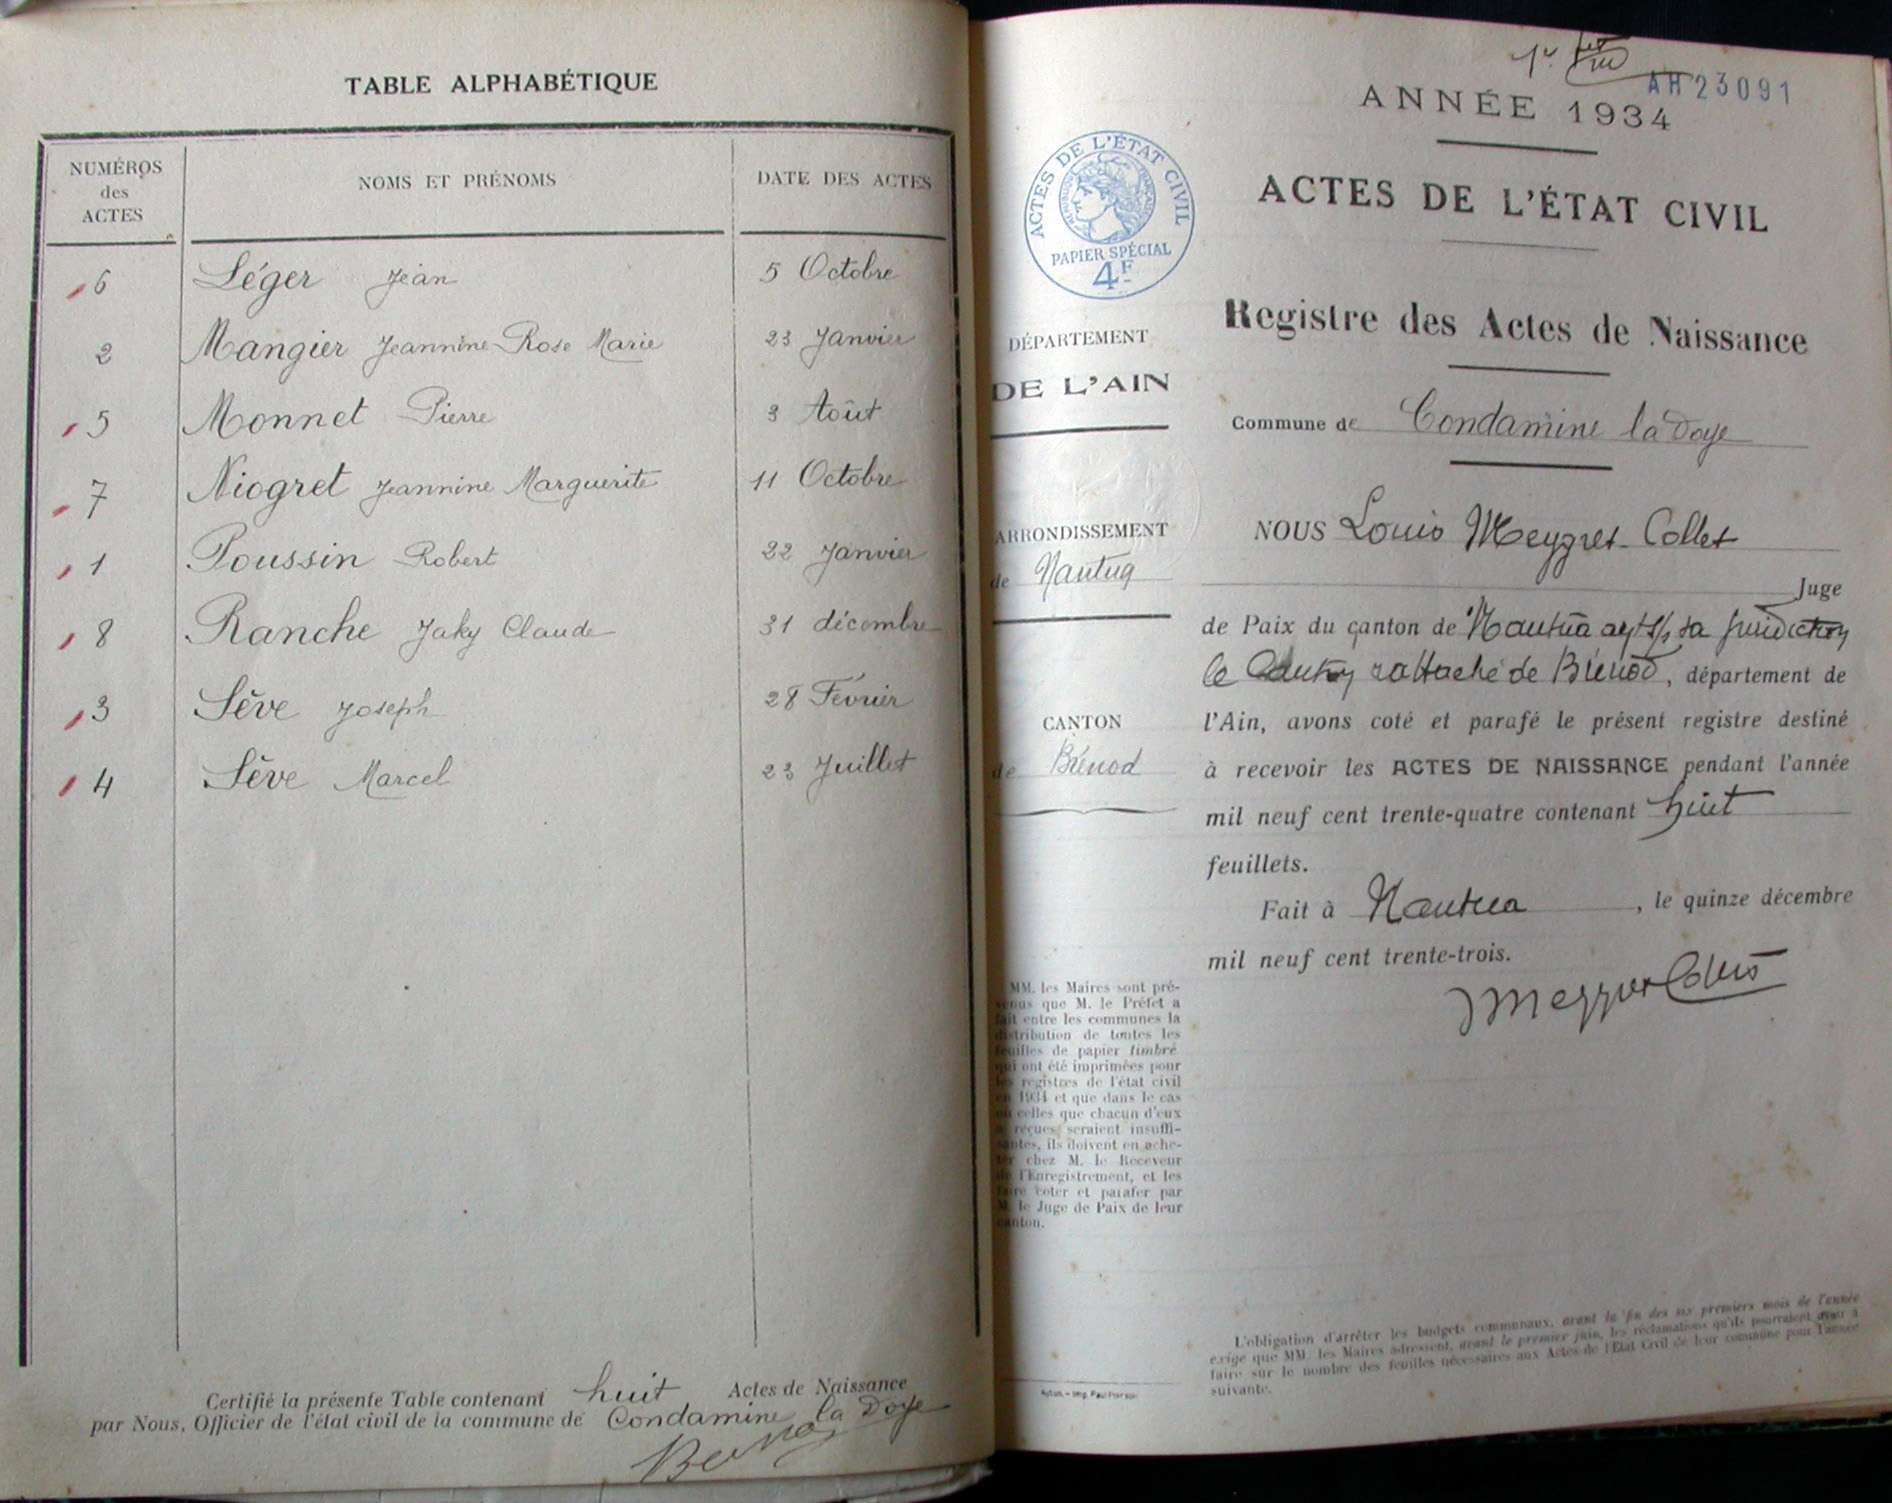 TABLE ALPHABÉTIQUE
NUMÉROS
des
ACTES
NOMS ET PRÉNOMS
DATE DES ACTES
6 Léger Jean 5 Octobre
2 Mangier Jeannine Rose Marie 23 Janvier
5 Monnet Pierre 3 Août
7 Niogret Jeannine Marguerite 11 Octobre
1 Poussin Robert 22 Janvier
8 Ranche Jaky Claude 31 décembre
3 Sève Joseph 28 Février
4 Sève Marcel 23 Juillet
Certifié la présente Table contenant huit Actes de Naissance
par Nous, Officier de l'état civil de la commune de Condamine la Doye
AH 23091
ANNÉE 1934
ACTES DE L'ÉTAT CIVIL
ACTES DE L'ÉTAT CIVIL
RÉPUBLIQUE FRANÇAISE
PAPIER SPÉCIAL
4F
Registre des Actes de Naissance
DÉPARTEMENT
DE L'AIN
Commune de Condamine la Doye
ARRONDISSEMENT
de Nantua
CANTON
de Brénod
NOUS Louis Meygret-Collet
Juge
de Paix du canton de Nantua ayt s/s sa juridiction
le Canton rattaché de Brénod, département de
l'Ain, avons coté et parafé le présent registre destiné
à recevoir les ACTES DE NAISSANCE pendant l'année
mil neuf cent trente-quatre contenant huit
feuillets.
Fait à Nantua, le quinze décembre
mil neuf cent trente-trois.
Meygret Collet
MM. les Maires sont pré-
venus que M. le Préfet a
fait entre les communes la
distribution de toutes les
feuilles de papier timbré
qui ont été imprimées pour
les registres de l'état civil
en 1934 et que dans le cas
où celles que chacun d'eux
a reçues seraient insuffi-
santes, ils doivent en ache-
ter chez M. le Receveur
de l'Enregistrement, et les
faire coter et parafer par
M. le Juge de Paix de leur
canton.
L'obligation d'arrêter les budgets communaux, avant la fin des six premiers mois de l'année
exige que MM. les Maires adressent, avant le premier juin, les réclamations qu'ils pourraient avoir à
faire sur le nombre des feuilles nécessaires aux Actes de l'Etat Civil de leur commune pour l'année
suivante.